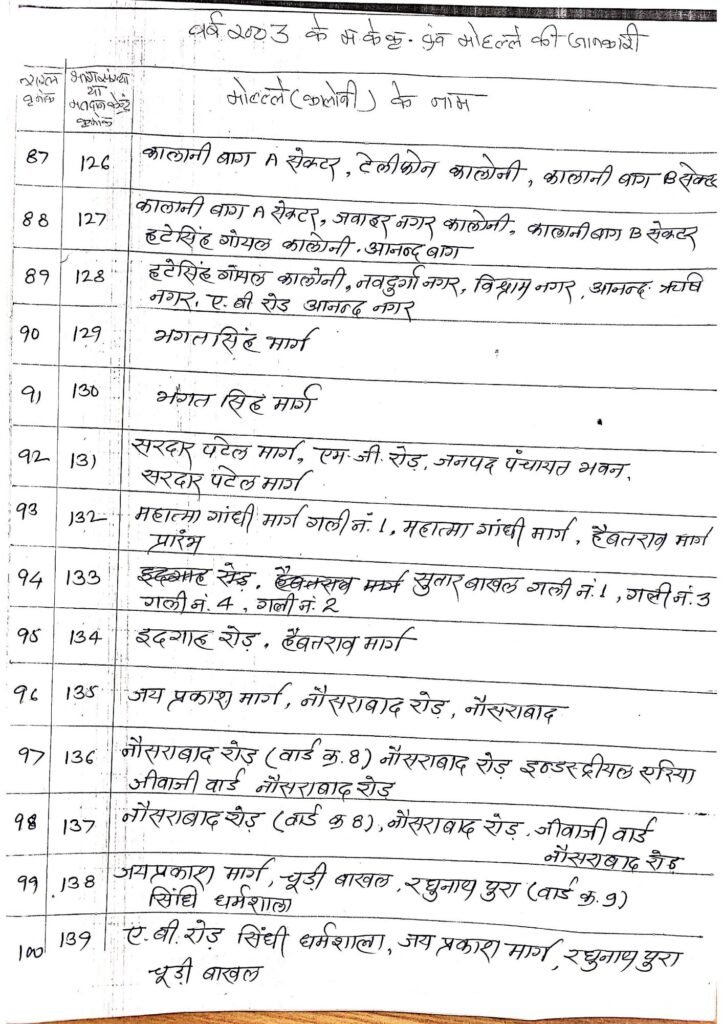 वर्ष 2003 के म के कृ. एवं मोहल्ले की जानकारी
सरल कृमांक भागसंख्या या मतदान केन्द्र कृमांक मोहल्ले (कालोनी) के नाम
87 126 कालानी बाग A सेक्टर, टेलीफोन कालोनी, कालानी बाग B सेक्ट
88 127 कालानी बाग A सेक्टर, जवाहर नगर कालोनी, कालानी बाग B सेक्टर
हटेसिंह गोयल कालोनी. आनन्द बाग
89 128 हटेसिंह गोयल कालोनी, नवदुर्गा नगर, विश्राम नगर, आनन्द ऋषि
नगर, ए. बी रोड आनन्द नगर
90 129 भगतसिंह मार्ग
91 130 भगत सिंह मार्ग
92 131 सरदार पटेल मार्ग, एम.जी. रोड़, जनपद पंचायत भवन,
सरदार पटेल मार्ग
93 132 महात्मा गांधी मार्ग गली नं. 1, महात्मा गांधी मार्ग, हैबतराव मार्ग
प्रारंभ
94 133 इदगाह रोड़, हैबतराव मार्ग सुतार बाखल गली नं. 1, गली नं. 3
गली नं. 4, गली नं. 2
95 134 इदगाह रोड़, हैबतराव मार्ग
96 135 जय प्रकाश मार्ग, नौसराबाद रोड़, नौसराबाद
97 136 नौसराबाद रोड़ (वार्ड क्र. 8) नौसराबाद रोड़ इन्डस्ट्रीयल एरिया
जीवाजी वार्ड नौसराबाद रोड़
98 137 नौसराबाद रोड़ (वार्ड क्र 8), नौसराबाद रोड़. जीवाजी वार्ड
नौसराबाद रोड़
99 138 जयप्रकाश मार्ग, चूड़ी बाखल, रघुनाथ पुरा (वार्ड क्र. 9)
सिंधि धर्मशाला
100 139 ए. बी. रोड़ सिंधी धर्मशाला, जय प्रकाश मार्ग, रघुनाथ पुरा
चूड़ी बाखल